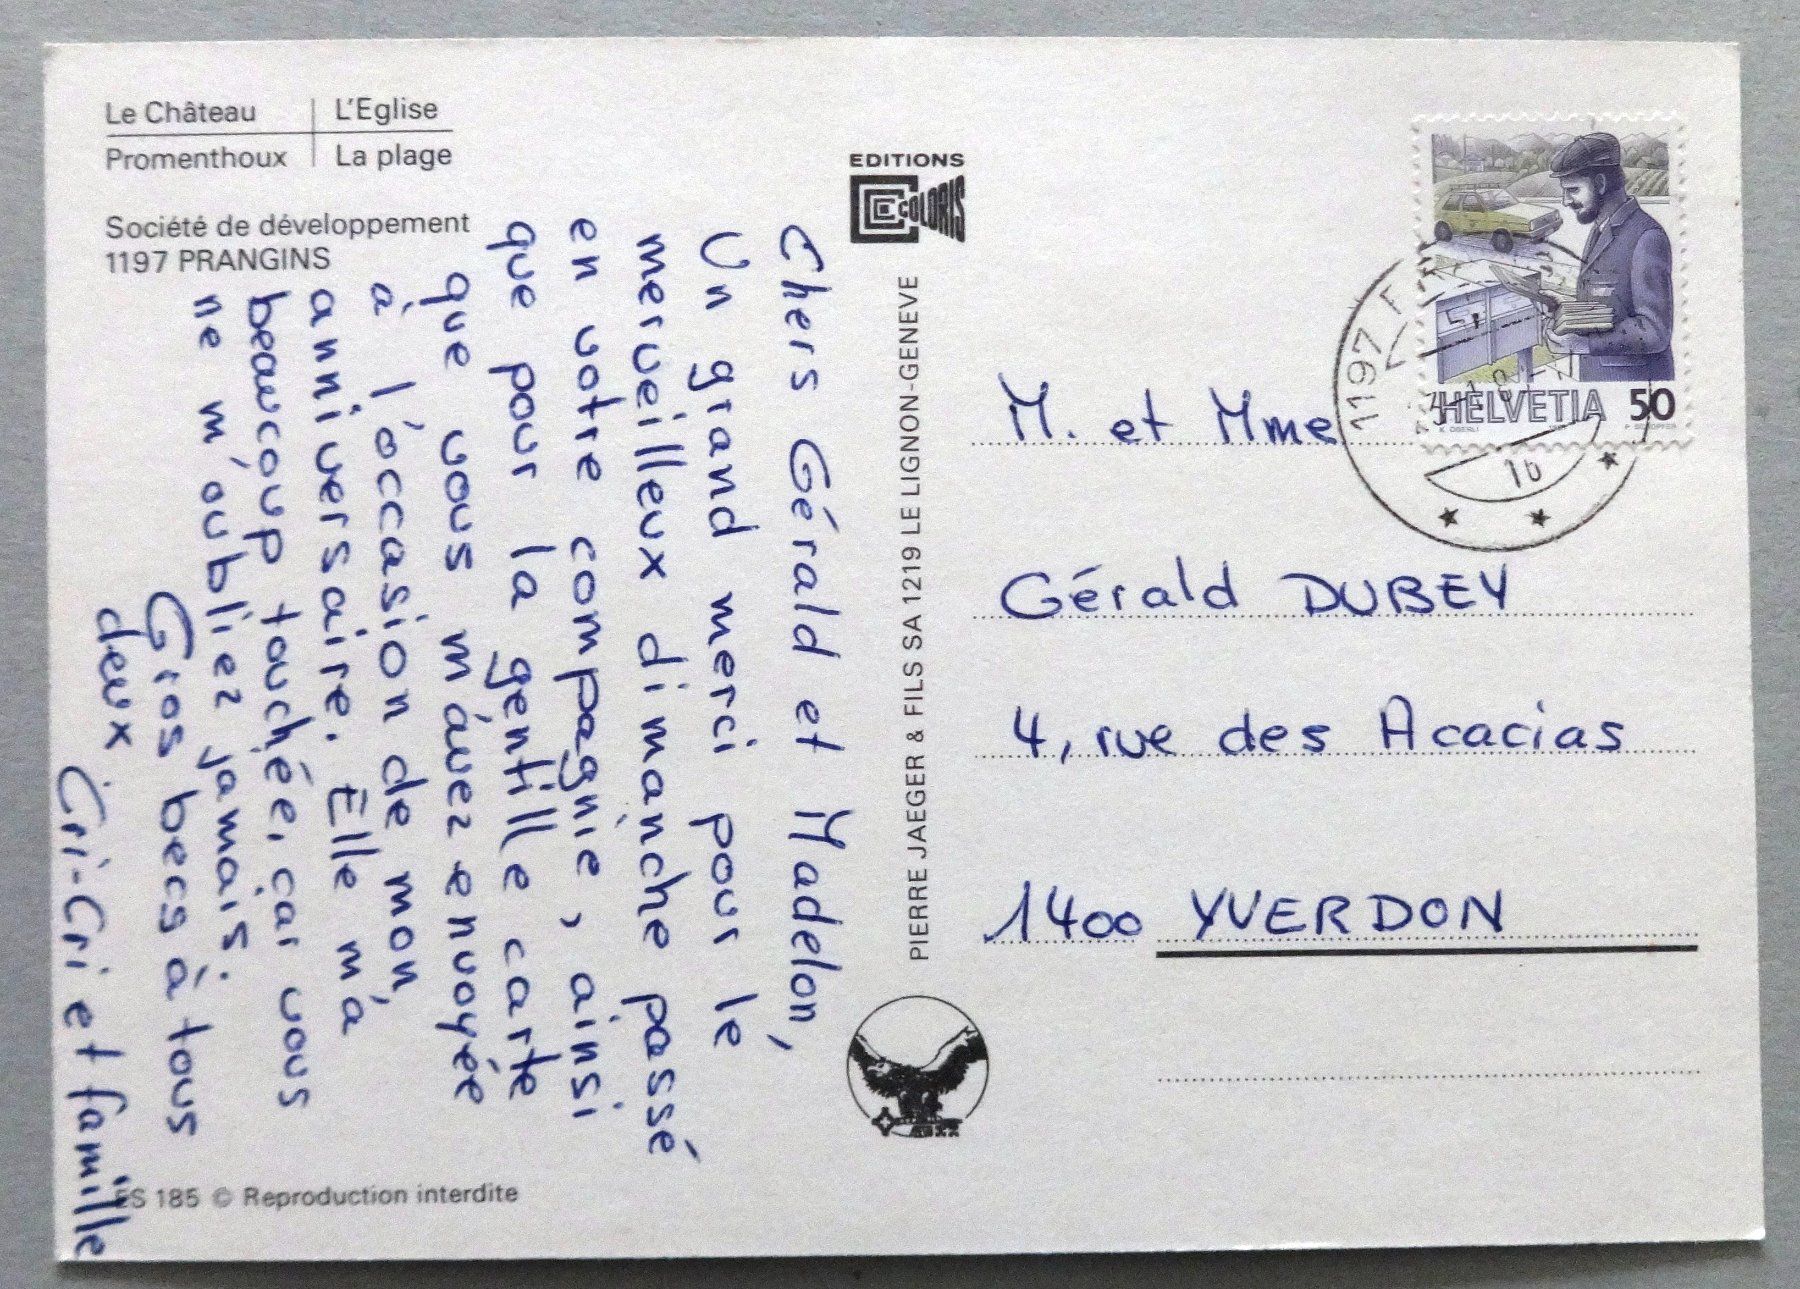 Le Château | L'Eglise
Promenthoux | La plage
Société de développement
1197 PRANGINS
Chers Gérald et Madelon,
Un grand merci pour le
merveilleux dimanche passé
en votre compagnie, ainsi
que pour la gentille carte
que vous m'avez envoyée
à l'occasion de mon
anniversaire. Elle m'a
beaucoup touchée, car vous
ne m'oubliez jamais.
Gros becs à tous
deux
Cri-Cri et famille
ES 185 © Reproduction interdite
EDITIONS
COLORIS
PIERRE JAEGER & FILS SA 1219 LE LIGNON-GENEVE
HELVETIA 50
K. OBERLI
P. SCHOPFER
1197
M. et Mme
Gérald DUBEY
4, rue des Acacias
1400 YVERDON